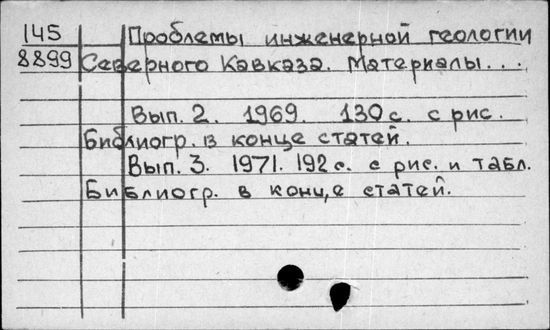 145 Проблемы инженерной геологии
8899 Северного Кавказа. Материалы...
Вып. 2. 1969. 130 с. с рис.
Библиогр. в конце статей.
Вып. 3. 1971. 192 с. с рис. и табл.
Библиогр. в конце статей.